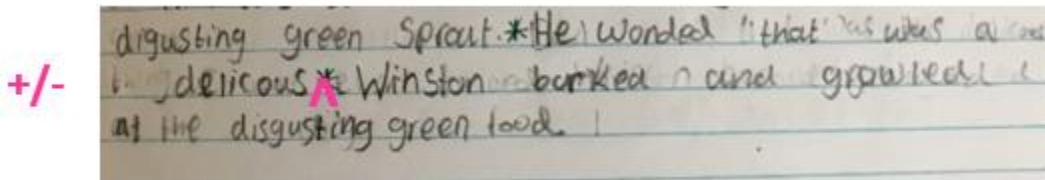 digusting green Sprout.*He wonded "that was a
+/- delicous * Winston barked and growled
at the disgusting green food.